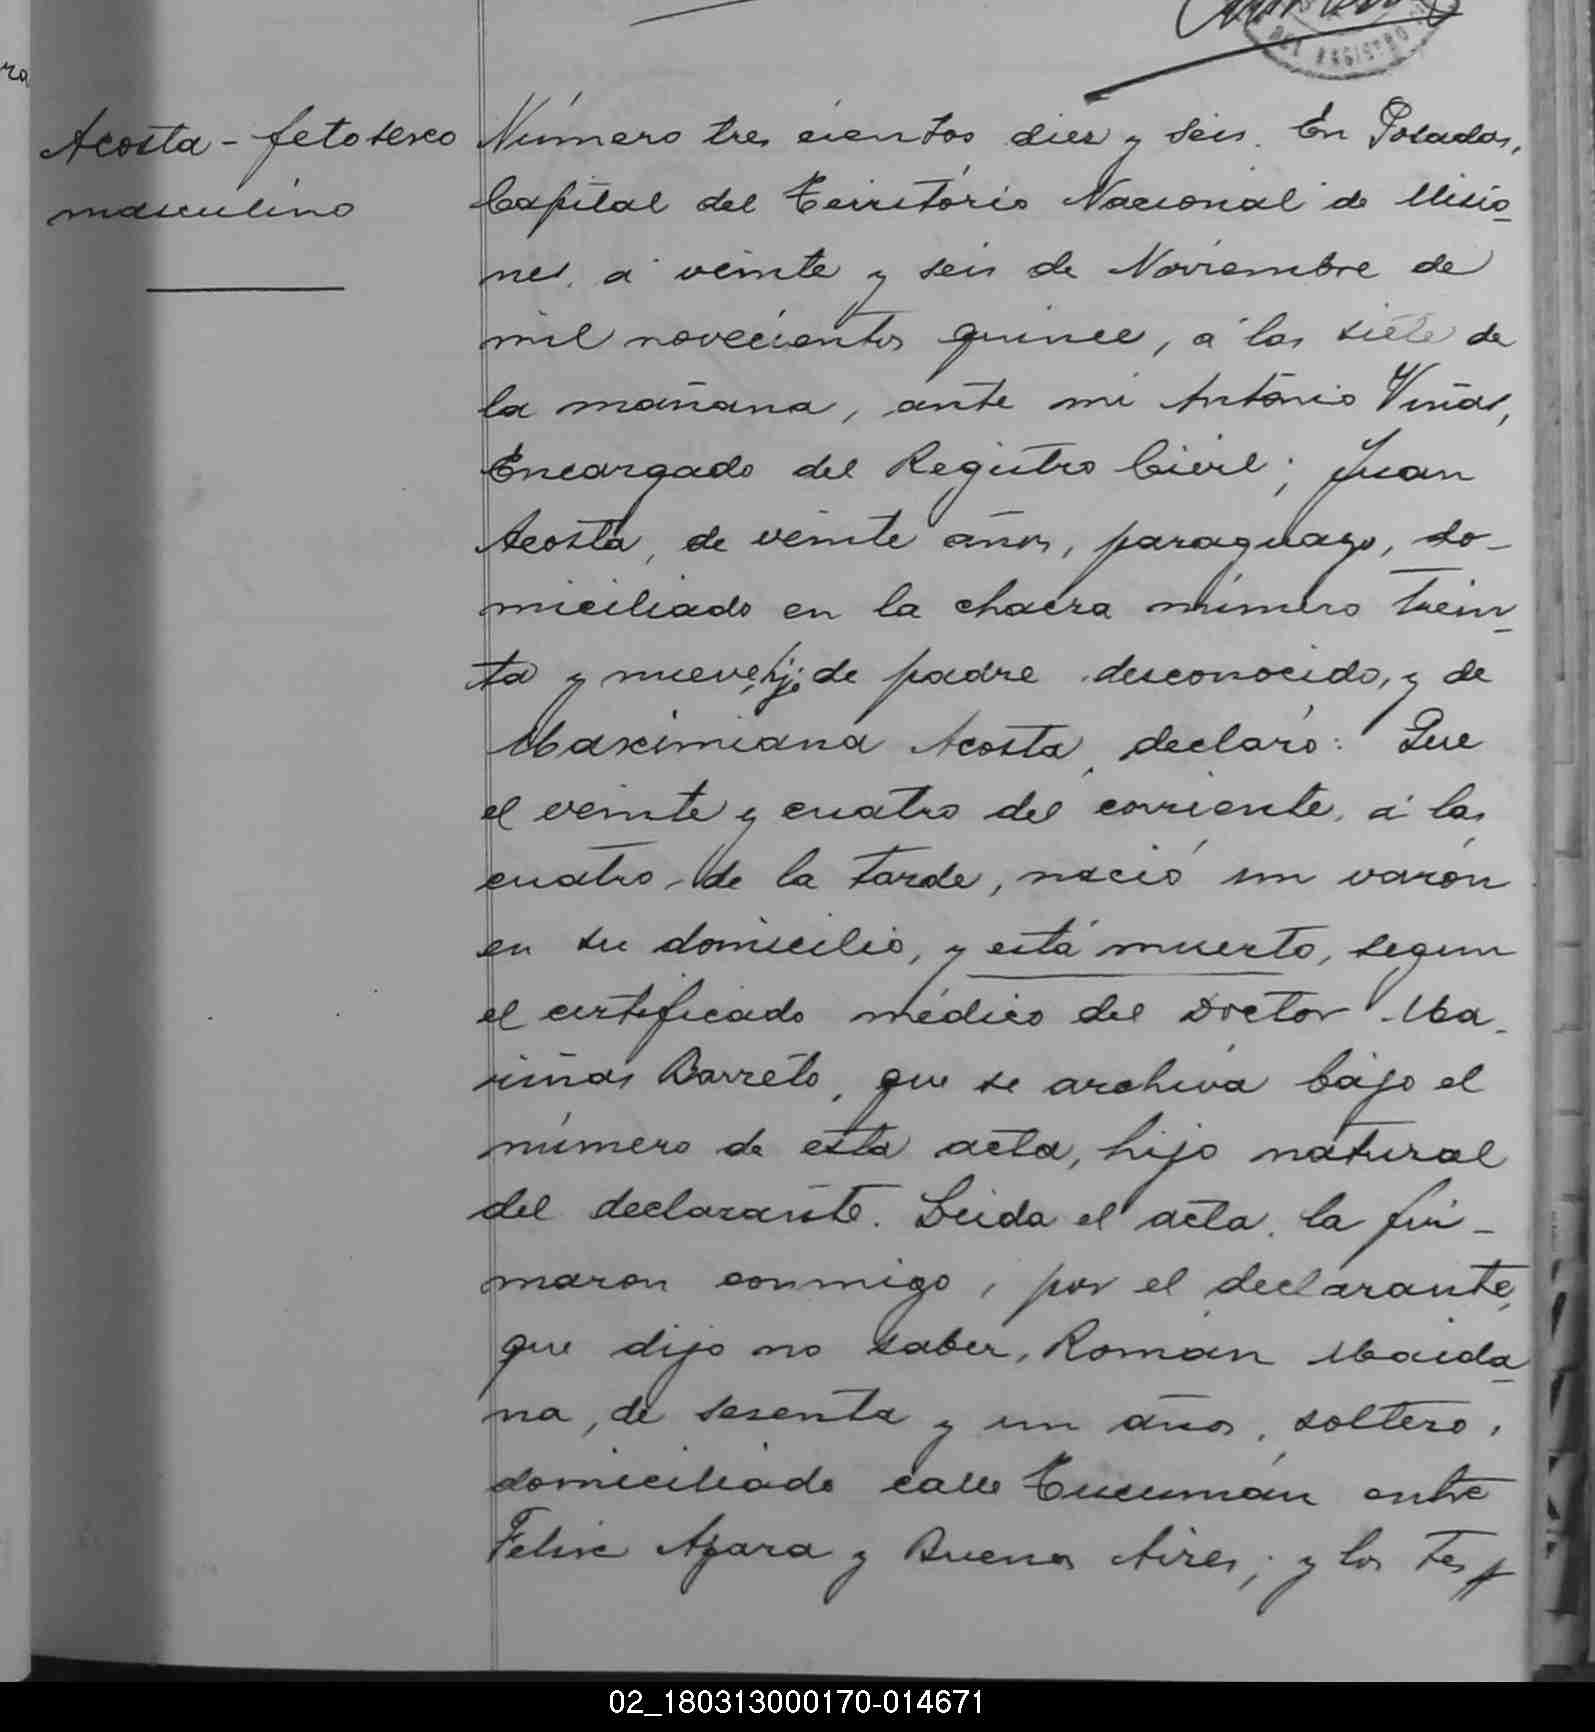 DEL REGISTRO
ra
Acosta - feto sexo
masculino
Número tres cientos diez y seis. En Posadas,
Capital del Territorio Nacional de Misio-
nes, á veinte y seis de Noviembre de
mil novecientos quince, á las siete de
la mañana, ante mi Antonio Viñas,
Encargado del Registro Civil; Juan
Acosta, de veinte años, paraguayo, do-
miciliado en la chacra número trein-
ta y nueve, hijo de padre desconocido, y de
Maximiana Acosta, declaró: Que
el veinte y cuatro del corriente, á las
cuatro de la tarde, nació un varón
en su domicilio, y está muerto, segun
el certificado médico del Doctor Ma-
riñas Barreto, que se archiva bajo el
número de esta acta, hijo natural
del declarante. Leida el acta, la fir-
maron conmigo, por el declarante,
que dijo no saber, Román Maida-
na, de sesenta y un años, soltero,
domiciliado calle Tucumán entre
Felix Azara y Buenos Aires; y los tes
02_180313000170-014671